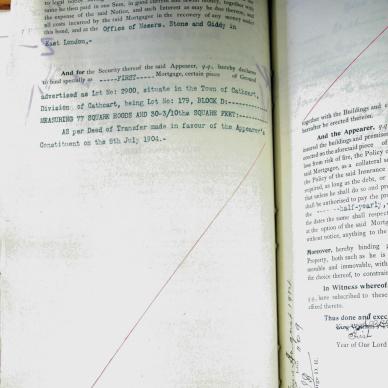 to legal notice
same be then paid in one Sum, in good current and lawful money, together with
the expense of the said Notice, and such Interest as may be due thereon, and
all costs incurred by the said Mortgagee in the recovery of any money under
this bond, and at the Office of Messrs. Stone and Giddy in
East London,-
And for the Security thereof the said Appearer, q.q., hereby declares
to bind specially as -----FIRST----- Mortgage, certain piece of Ground
advertised as Lot No: 2900, situate in the Town of Cathcart,
Division of Cathcart, being Lot No: 179, BLOCK D:
MEASURING 77 SQUARE ROODS AND 30-3/10ths SQUARE FEET:
AS per Deed of Transfer made in favour of the Appearer's
Constituent on the 8th July 1904.-
together with the Buildings and
hereafter be erected thereon.
And the Appearer, q.q.
insured the buildings and premises
erected on the aforesaid piece of
loss from risk of fire, the Policy
said Mortgagee, as a collateral
the Policy of the said Insurance
required, as long as the debt, or
that unless he shall do so and
shall be authorised to pay the
the -----half-yearly,
the dates the same shall respect
at the option of the said Mortg
without notice, anything to the
Moreover, hereby binding
Property, both such as he is
movable and immovable, with
for choice thereof, to constrain
In Witness whereof
q.q. have subscribed to these
affixed thereto.
Thus done and exec
Year of Our Lord